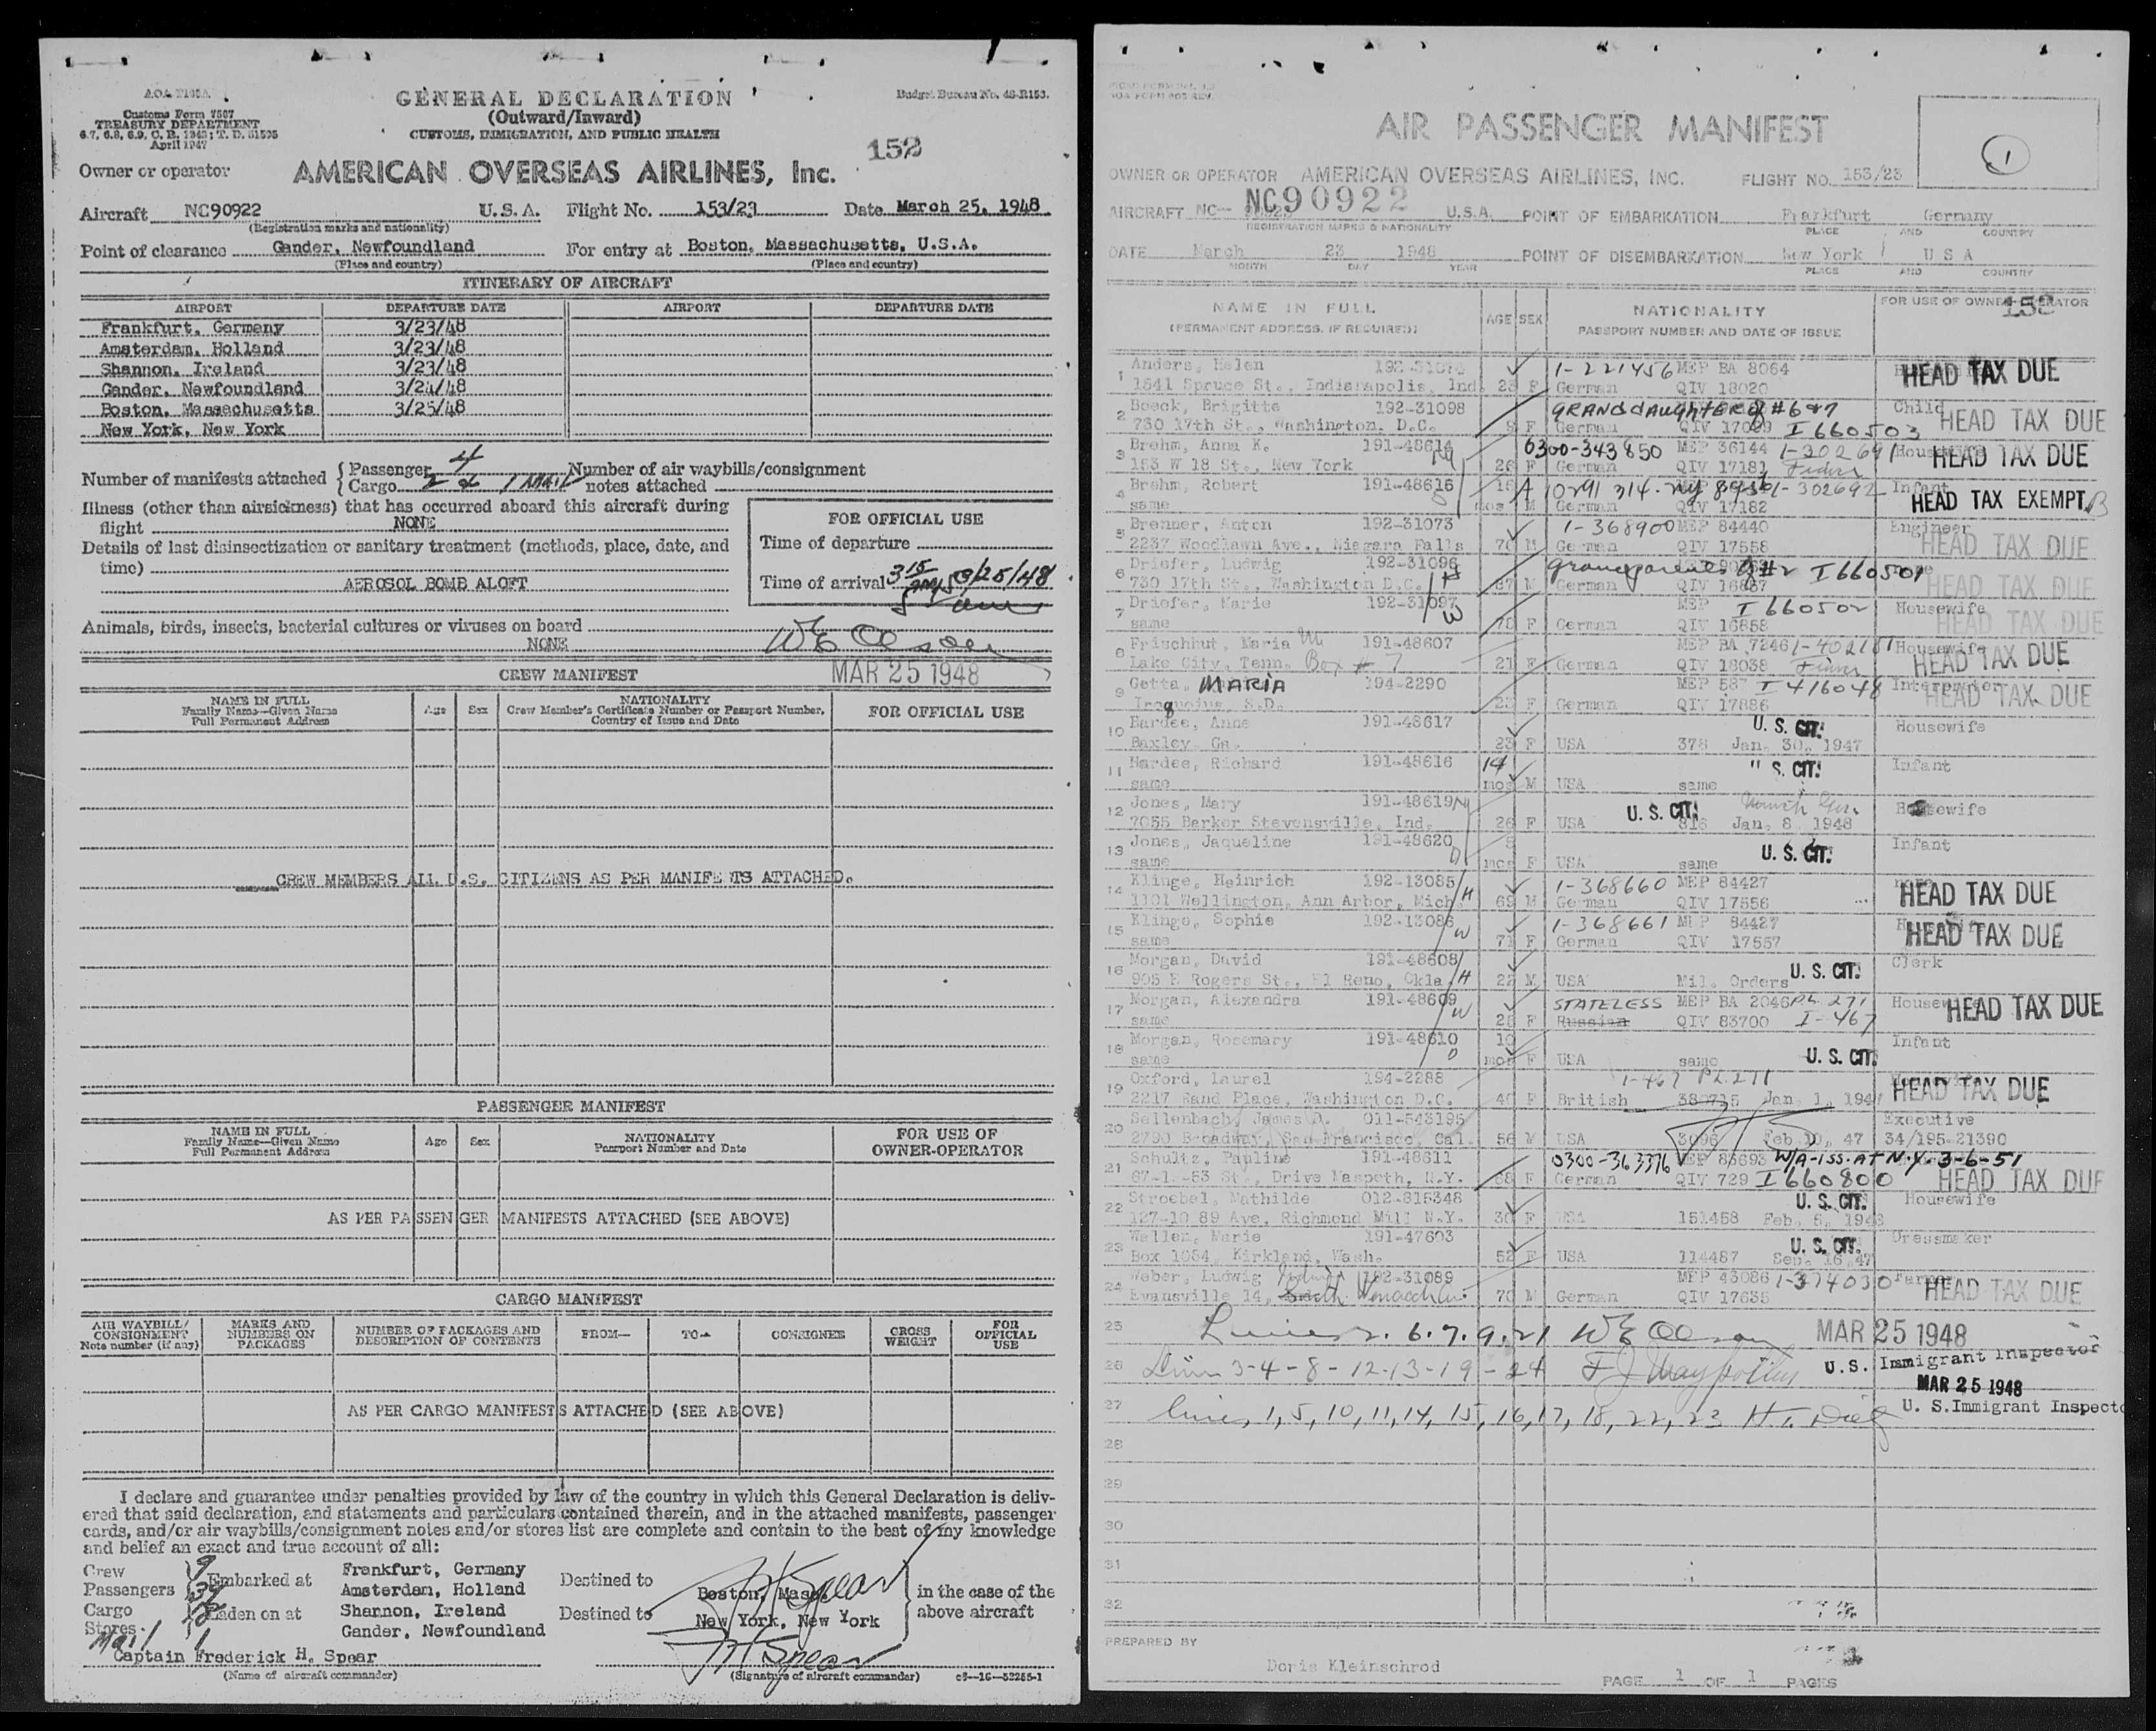 A.O.A.
Customs Form 7507
TREASURY DEPARTMENT
6.7, 6.8, 6.9, C. R. 1943; T. D. 51595
April 1947
GENERAL DECLARATION
(Outward/Inward)
CUSTOMS, IMMIGRATION, AND PUBLIC HEALTH
Budget Bureau No. 48-R153.
152
Owner or operator AMERICAN OVERSEAS AIRLINES, Inc.
Aircraft NC90922 U.S.A. Flight No. 153/23 Date March 25, 1948
(Registration marks and nationality)
Point of clearance Gander, Newfoundland For entry at Boston, Massachusetts, U.S.A.
(Place and country) (Place and country)
ITINERARY OF AIRCRAFT
AIRPORT DEPARTURE DATE AIRPORT DEPARTURE DATE
Frankfurt, Germany 3/23/48
Amsterdam, Holland 3/23/48
Shannon, Ireland 3/23/48
Gander, Newfoundland 3/24/48
Boston, Massachusetts 3/25/48
New York, New York
Number of manifests attached { Passenger 4 Number of air waybills/consignment
Cargo 1 MAIL notes attached
Illness (other than airsickness) that has occurred aboard this aircraft during
flight NONE
Details of last disinsectization or sanitary treatment (methods, place, date, and
time)
AEROSOL BOMB ALOFT
FOR OFFICIAL USE
Time of departure
Time of arrival 3 15 3/25/48
Animals, birds, insects, bacterial cultures or viruses on board
NONE
W E Olson
CREW MANIFEST MAR 25 1948
NAME IN FULL
Family Name—Given Name
Full Permanent Address
Age Sex
NATIONALITY
Crew Member's Certificate Number or Passport Number,
Country of Issue and Date
FOR OFFICIAL USE
CREW MEMBERS ALL U.S. CITIZENS AS PER MANIFESTS ATTACHED.
PASSENGER MANIFEST
NAME IN FULL
Family Name—Given Name
Full Permanent Address
Age Sex
NATIONALITY
Passport Number and Date
FOR USE OF
OWNER-OPERATOR
AS PER PASSENGER MANIFESTS ATTACHED (SEE ABOVE)
CARGO MANIFEST
AIR WAYBILL/
CONSIGNMENT
Note number (if any)
MARKS AND
NUMBERS ON
PACKAGES
NUMBER OF PACKAGES AND
DESCRIPTION OF CONTENTS
FROM— TO— CONSIGNEE
GROSS
WEIGHT
FOR
OFFICIAL
USE
AS PER CARGO MANIFESTS ATTACHED (SEE ABOVE)
I declare and guarantee under penalties provided by law of the country in which this General Declaration is deliv-
ered that said declaration, and statements and particulars contained therein, and in the attached manifests, passenger
cards, and/or air waybills/consignment notes and/or stores list are complete and contain to the best of my knowledge
and belief an exact and true account of all:
Crew 9 Embarked at Frankfurt, Germany Destined to Boston, Mass. in the case of the
Passengers Amsterdam, Holland above aircraft
Cargo Laden on at Shannon, Ireland Destined to New York, New York
Stores Gander, Newfoundland
Mail 1
Captain Frederick H. Spear F H Spear
(Name of aircraft commander) (Signature of aircraft commander) c8—16—53255-1
AIR PASSENGER MANIFEST
1
OWNER OR OPERATOR AMERICAN OVERSEAS AIRLINES, INC. FLIGHT NO. 153/23
AIRCRAFT NC— NC90922 U.S.A. POINT OF EMBARKATION Frankfurt Germany
REGISTRATION MARKS & NATIONALITY PLACE AND COUNTRY
DATE March 23 1948 POINT OF DISEMBARKATION New York / U S A
MONTH DAY YEAR PLACE AND COUNTRY
NAME IN FULL
(PERMANENT ADDRESS, IF REQUIRED)
AGE SEX
NATIONALITY
PASSPORT NUMBER AND DATE OF ISSUE
FOR USE OF OWNER-OPERATOR
1 Anders, Helen 1-221456 MEP BA 8064 HEAD TAX DUE
1541 Spruce St., Indianapolis, Ind. F German QIV 18020
2 Boeck, Brigitte 192-31098 GRANDDAUGHTER of #6&7 Child HEAD TAX DUE
730 17th St., Washington, D.C. 9 F German I 660503
3 Brehm, Anna K. 191-48614 0300-343850 MEP 36144 Housewife HEAD TAX DUE
163 W 18 St., New York 26 F German QIV 17181
4 Brehm, Robert 191-48616 1-302692 Infant HEAD TAX EXEMPT
same mos M German QIV 17182
5 Brenner, Anton 192-31073 1-368900 MEP 84440 Engineer HEAD TAX DUE
2237 Woodlawn Ave., Niagara Falls 70 M German QIV 17558
6 Driefer, Ludwig 192-31096 grandparents of #2 I 660501 HEAD TAX DUE
730 17th St., Washington D.C. 67 M German
7 Driefer, Marie 192-31097 MEP I 660502 Housewife HEAD TAX DUE
same F German QIV 16858
8 Frischhut, Maria M 191-48607 MEP BA 7246 Housewife HEAD TAX DUE
Lake City, Tenn. Box # 7 21 F German QIV 18038
9 Getta, MARIA 194-2290 MEP I 416048 HEAD TAX DUE
Iroquois, S.D. F German QIV 17886
10 Hardee, Anne 191-48617 U. S. CIT. Housewife
Baxley, Ga. 23 F USA 378 Jan. 30, 1947
11 Hardee, Richard 191-48616 14 " S. CIT. Infant
same mos M USA same
12 Jones, Mary 191-48619 U. S. CIT. Housewife
7055 Barker Stevensville, Ind. 26 F USA 816 Jan. 8, 1948
13 Jones, Jaqueline 191-48620 U. S. CIT. Infant
same mos F USA same
14 Klinge, Heinrich 192-13085 H 1-368660 MEP 84427 HEAD TAX DUE
1101 Wellington, Ann Arbor, Mich. 69 M German QIV 17556
15 Klinge, Sophie 192-13086 W 1-368661 MEP 84427 HEAD TAX DUE
same 71 F German QIV 17557
16 Morgan, David 191-48608 U. S. CIT. Clerk
905 E Rogers St., El Reno, Okla. H 22 M USA Mil. Orders
17 Morgan, Alexandra 191-48609 W STATELESS MEP BA 2046 PL 271 Housewife HEAD TAX DUE
same 28 F Russian QIV 83700 I-467
18 Morgan, Rosemary 191-48610 D 10 U. S. CIT. Infant
same mos F USA same
19 Oxford, Laurel 194-2288 1-467 PL 271 HEAD TAX DUE
2217 Rand Place, Washington D.C. 40 F British 380715 Jan. 1, 1947
20 Sellenbach, James A. 011-543195 Executive
2790 Broadway, San Francisco, Cal. 56 M USA 3096 Feb 10, 47 34/195-21390
21 Schultz, Pauline 191-48611 0300-363376 MEP 83693 W/A-ISS. AT N.Y. 3-6-51
St., Drive Maspeth, N.Y. 68 F German QIV 729 I 660800 HEAD TAX DUE
22 Stroebel, Mathilde 012-815348 U. S. CIT. Housewife
127-10 89 Ave, Richmond Mill N.Y. 30 F USA 151458 Feb. 5, 1948
23 Wallen, Marie 191-47603 U. S. CIT. Dressmaker
Box 1084, Kirkland, Wash. 52 F USA 114487 Sep. 16, 47
24 Weber, Ludwig 192-31089 MEP 43086 1-374030 Farmer HEAD TAX DUE
Evansville 14, 70 M German QIV 17635
25 Lines 2. 6. 7. 9. 21 W E Olson MAR 25 1948
26 Lines 3-4-8-12-13-19-24 U.S. Immigrant Inspector
MAR 25 1948
27 Lines, 1, 5, 10, 11, 14, 15, 16, 17, 18, 22, 23 U. S. Immigrant Inspecto
28
29
30
31
32
PREPARED BY
Doris Kleinschrod
PAGE 1 OF 1 PAGES